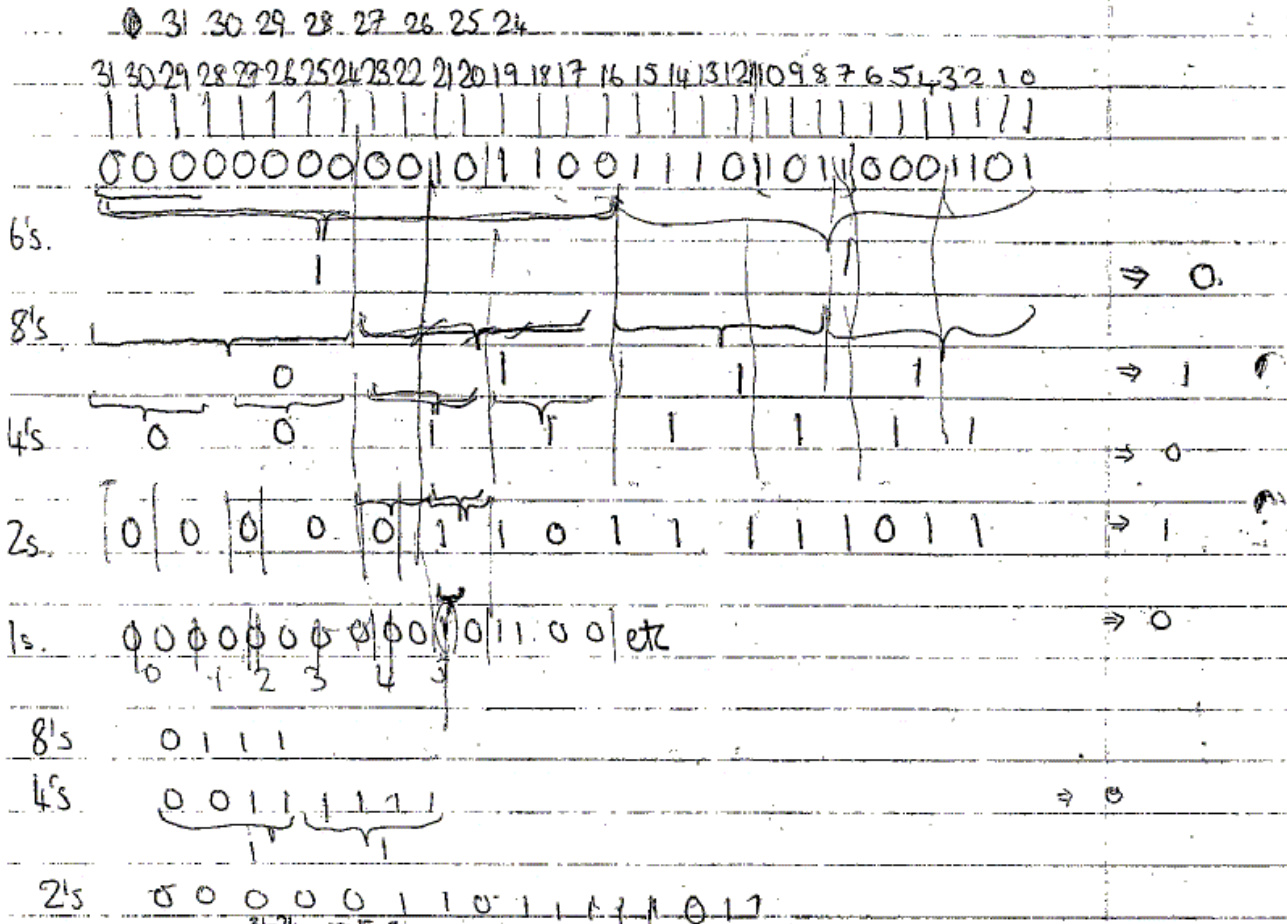 31 30 29 28 27 26 25 24
31 30 29 28 27 26 25 24 23 22 21 20 19 18 17 16 15 14 13 12 11 10 9 8 7 6 5 4 3 2 1 0
0 0 0 0 0 0 0 0 0 0 1 0 1 1 0 0 1 1 1 0 1 1 0 1 1 0 0 0 1 1 0 1
6's.
1 1 ⇒ 0.
8's.
0 1 1 1 ⇒ 1
4's 0 0 1 1 1 1 1 1 ⇒ 0
2s. 0 0 0 0 0 1 1 0 1 1 1 1 0 1 1 ⇒ 1
1s. 0 0 0 0 0 0 0 0 0 0 1 0 1 1 0 0 etc ⇒ 0
0 1 2 3 4 5
8's 0 1 1 1
4's 0 0 1 1 1 1 1 1 ⇒ 0
1 1
2's 0 0 0 0 0 1 1 0 1 1 1 1 1 0 1 1